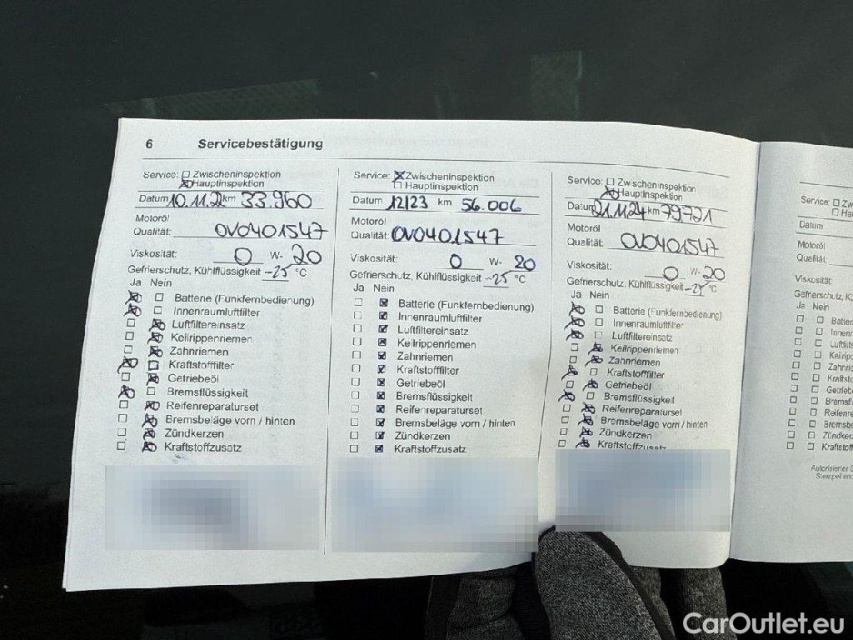 6 Servicebestätigung
Service: ☐ Zwischeninspektion
☒ Hauptinspektion
Datum 10.11.2 km 33.960
Motoröl
Qualität: 0V0401547
Viskosität: 0 W- 20
Gefrierschutz, Kühlflüssigkeit -25 °C
Ja Nein
☒ ☐ Batterie (Funkfernbedienung)
☒ ☐ Innenraumluftfilter
☐ ☒ Luftfiltereinsatz
☐ ☒ Keilrippenriemen
☐ ☒ Zahnriemen
☒ ☐ Kraftstofffilter
☐ ☒ Getriebeöl
☒ ☐ Bremsflüssigkeit
☐ ☒ Reifenreparaturset
☐ ☒ Bremsbeläge vorn / hinten
☐ ☒ Zündkerzen
☐ ☒ Kraftstoffzusatz
Service: ☒ Zwischeninspektion
☐ Hauptinspektion
Datum 12/23 km 56.006
Motoröl
Qualität: 0V0401547
Viskosität: 0 W- 20
Gefrierschutz, Kühlflüssigkeit -25 °C
Ja Nein
☐ ☒ Batterie (Funkfernbedienung)
☐ ☒ Innenraumluftfilter
☐ ☒ Luftfiltereinsatz
☐ ☒ Keilrippenriemen
☐ ☒ Zahnriemen
☐ ☒ Kraftstofffilter
☐ ☒ Getriebeöl
☐ ☒ Bremsflüssigkeit
☐ ☒ Reifenreparaturset
☐ ☒ Bremsbeläge vorn / hinten
☐ ☒ Zündkerzen
☐ ☒ Kraftstoffzusatz
Service: ☐ Zwischeninspektion
☒ Hauptinspektion
Datum 21.11.24 km 79.721
Motoröl
Qualität: 0V0401547
Viskosität: 0 W- 20
Gefrierschutz, Kühlflüssigkeit -25 °C
Ja Nein
☒ ☐ Batterie (Funkfernbedienung)
☒ ☐ Innenraumluftfilter
☒ ☐ Luftfiltereinsatz
☐ ☒ Keilrippenriemen
☐ ☒ Zahnriemen
☒ ☐ Kraftstofffilter
☐ ☒ Getriebeöl
☒ ☐ Bremsflüssigkeit
☐ ☒ Reifenreparaturset
☐ ☒ Bremsbeläge vorn / hinten
☐ ☒ Zündkerzen
☐ ☒ Kraftstoffzusatz
Service: ☐
☐
Datum
Motoröl
Qualität:
Viskosität:
Gefrierschutz,
Ja Nein
CarOutlet.eu